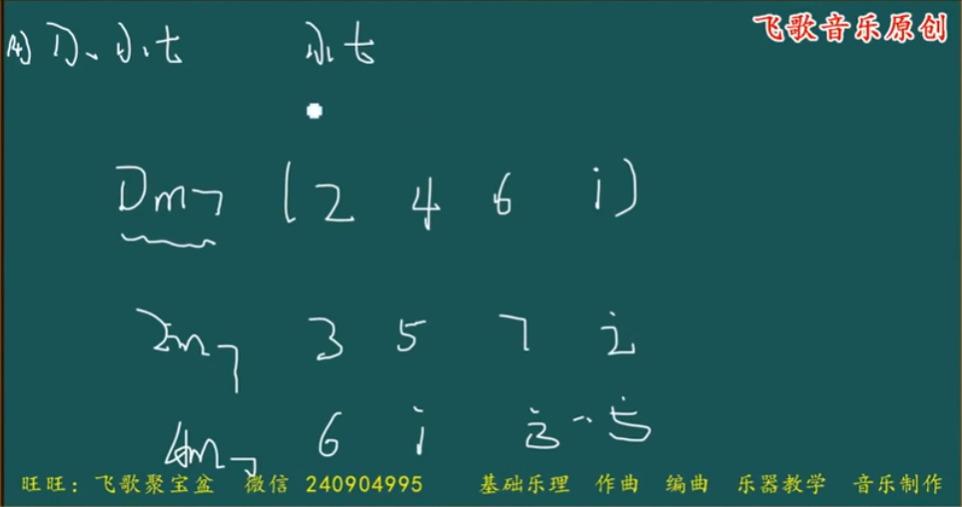 飞歌音乐原创
小七 小七
Dm7 (2 4 6 i)
3 5 7 2̇
6 i 3̇ 5̇
旺旺：飞歌聚宝盆 微信 240904995 基础乐理 作曲 编曲 乐器教学 音乐制作